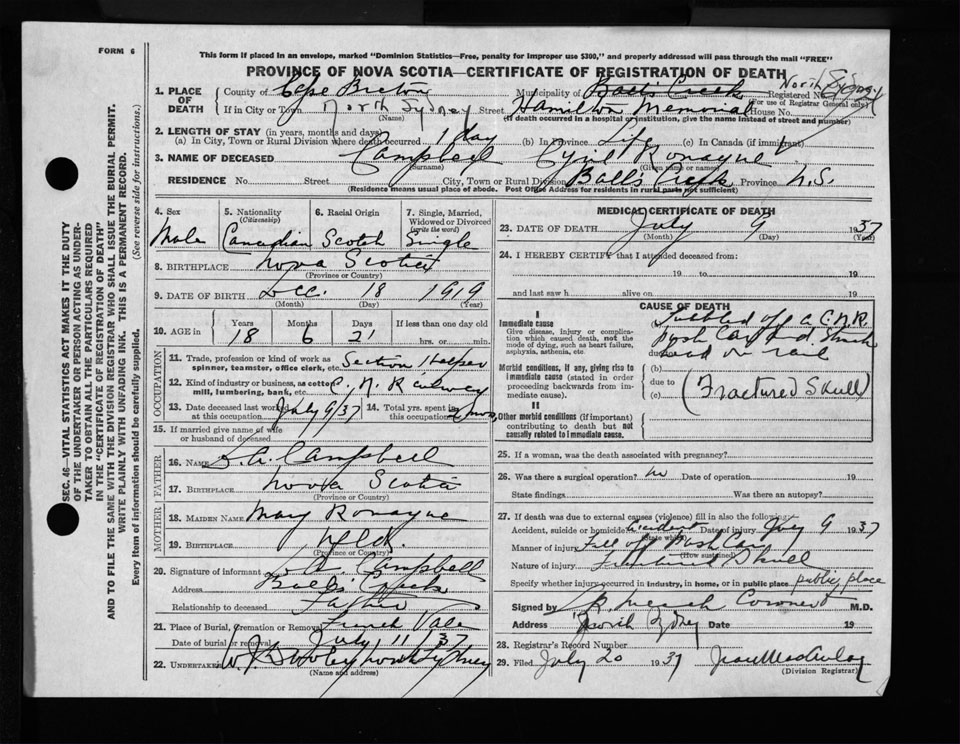 FORM 6
This form if placed in an envelope, marked "Dominion Statistics—Free, penalty for improper use $300," and properly addressed will pass through the mail "FREE"
PROVINCE OF NOVA SCOTIA—CERTIFICATE OF REGISTRATION OF DEATH
1. PLACE OF DEATH County of Cape Breton Municipality of Balls Creek North Sydney Registered No.
(For use of Registrar General only)
If in City or Town North Sydney Street Hamilton Memorial House No.
(Name) (If death occurred in a hospital or institution, give the name instead of street and number)
2. LENGTH OF STAY (in years, months and days)
(a) In City, Town or Rural Division where death occurred 1 day (b) In Province Life (c) In Canada (if immigrant)
3. NAME OF DECEASED Campbell Cyril Ronayne
(Surname) (Given name or names)
RESIDENCE No. Street City, Town or Rural Division Balls Creek Province N.S.
(Residence means usual place of abode. Post Office Address for residents in rural parts not sufficient)
4. Sex 5. Nationality (Citizenship) 6. Racial Origin 7. Single, Married, Widowed or Divorced (write the word)
Male Canadian Scotch Single
8. BIRTHPLACE Nova Scotia
(Province or Country)
9. DATE OF BIRTH Dec. 18 1919
(Month) (Day) (Year)
10. AGE in Years Months Days If less than one day old
18 6 21 hrs. or min.
OCCUPATION
11. Trade, profession or kind of work as spinner, teamster, office clerk, etc. Section helper
12. Kind of industry or business, as cotton mill, lumbering, bank, etc. C. N. Railway
13. Date deceased last worked at this occupation July 9/37 14. Total yrs. spent in this occupation 2 mos.
15. If married give name of wife or husband of deceased
FATHER
16. NAME Campbell
17. BIRTHPLACE Nova Scotia
(Province or Country)
MOTHER
18. MAIDEN NAME Mary Ronayne
19. BIRTHPLACE Nfld.
(Province or Country)
20. Signature of informant Campbell
Address Balls Creek
Relationship to deceased Father
21. Place of Burial, Cremation or Removal French Vale
Date of burial or removal July 11 1937
22. UNDERTAKER North Sydney
(Name and address)
MEDICAL CERTIFICATE OF DEATH
23. DATE OF DEATH July 9 1937
(Month) (Day) (Year)
24. I HEREBY CERTIFY that I attended deceased from:
19 to 19
and last saw h alive on 19
CAUSE OF DEATH
I
Immediate cause
Give disease, injury or complication which caused death, not the mode of dying, such as heart failure, asphyxia, asthenia, etc.
off a C.N.R.
Push Car and Struck
due to head on rail
Morbid conditions, if any, giving rise to immediate cause (stated in order proceeding backwards from immediate cause).
(b)
due to
(c) (Fractured Skull)
II
Other morbid conditions (if important) contributing to death but not causally related to immediate cause.
25. If a woman, was the death associated with pregnancy?
26. Was there a surgical operation? no Date of operation 19
State findings Was there an autopsy?
27. If death was due to external causes (violence) fill in also the following:
Accident, suicide or homicide Accident Date of injury July 9 1937
(State which)
Manner of injury Fell off Push Car
(How sustained)
Nature of injury Fractured Skull
Specify whether injury occurred in industry, in home, or in public place public place
Signed by Coroner M.D.
Address North Sydney Date 19
28. Registrar's Record Number
29. Filed July 20 1937
(Division Registrar)
SEC. 46—VITAL STATISTICS ACT MAKES IT THE DUTY
OF THE UNDERTAKER OR PERSON ACTING AS UNDER-
TAKER TO OBTAIN ALL THE PARTICULARS REQUIRED
IN THE "CERTIFICATE OF REGISTRATION OF DEATH"
AND TO FILE THE SAME WITH THE DIVISION REGISTRAR WHO SHALL ISSUE THE BURIAL PERMIT.
WRITE PLAINLY WITH UNFADING INK. THIS IS A PERMANENT RECORD.
Every item of information should be carefully supplied. (See reverse side for instructions.)